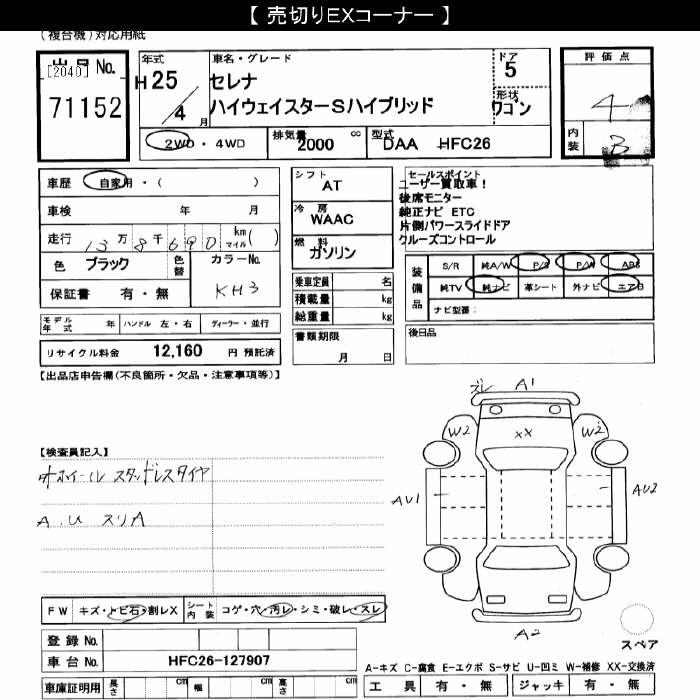 【 売切りEXコーナー 】
(複台機)対応用紙
出品 No. [2040]
71152
年式 H 25 / 4 月
車名・グレード
セレナ
ハイウェイスターSハイブリッド
ドア 5
形状 ワゴン
評価点 4
内装 B
2WD ・ 4WD 排気量 2000 cc 型式 DAA HFC26
車歴 自家用・( )
車検 年 月
走行 13万8千690 km マイル ( )
色 ブラック 色替 カラーNo. KH3
保証書 有・無
シフト AT
冷房 WAAC
燃料 ガソリン
乗車定員 名
積載量 kg
総重量 kg
セールスポイント
ユーザー買取車!
後席モニター
純正ナビ ETC
片側パワースライドドア
クルーズコントロール
装備品 S/R 純A/W P/S P/W ABS
純TV 純ナビ 革シート 外ナビ エアB
ナビ型番:
モデル年式 年 ハンドル 左・右 ディーラー・並行
書類期限 月 日
後日品
リサイクル料金 12,160 円 預託済
【出品店申告欄(不良箇所・欠品・注意事項等)】
ズレ A1
W2 XX W2
【検査員記入】
ホイール スタッドレスタイヤ
A.U スリA
AU1 AU2
A2
スペア
FW キズ・トビ石・割レX シート内装 コゲ・穴・汚レ・シミ・破レ・スレ
登録 No.
車台 No. HFC26-127907
車庫証明用 長さ cm 幅 cm 高さ cm
A-キズ C-腐食 E-エクボ S-サビ U-凹ミ W-補修 XX-交換済
工具 有・無 ジャッキ 有・無